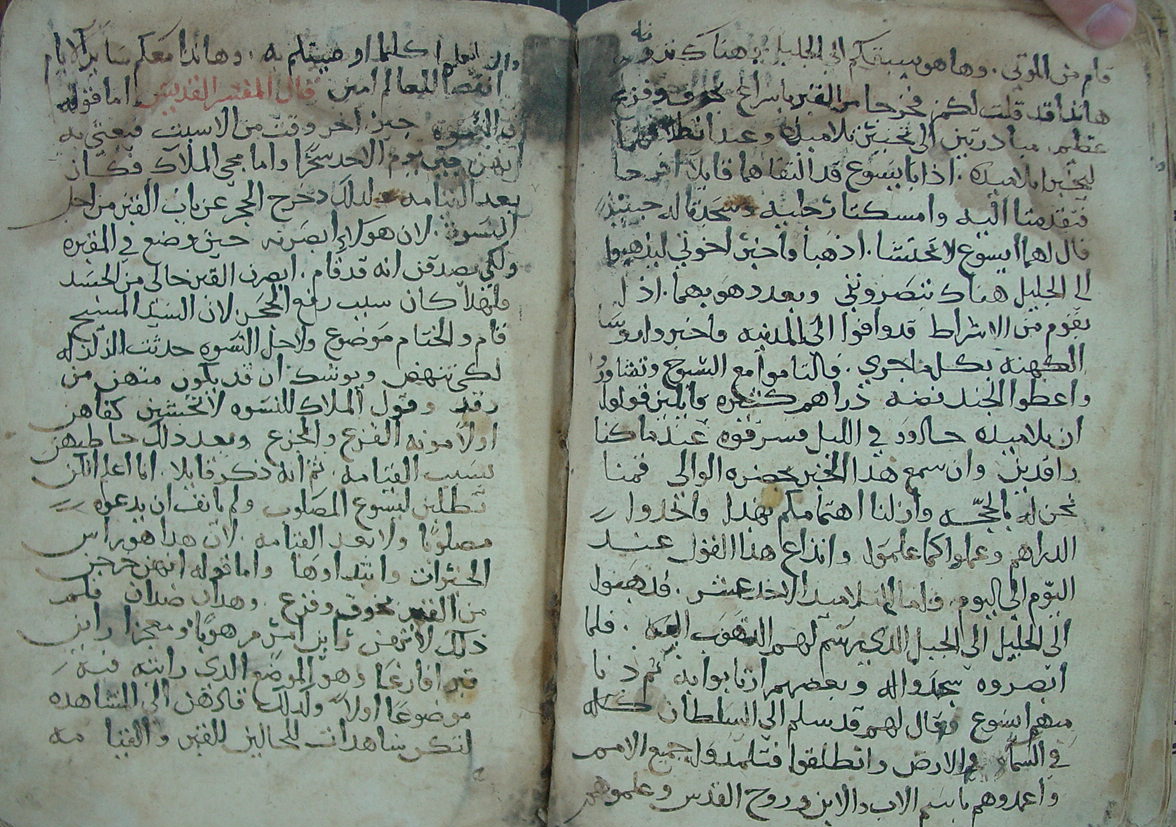 قام من الموتى. وها هو يسبقكم الى الجليل. وهناك ترونه
هاندا قد قلت لكن. فخرجا من القبر باسراع بخوف وفزع
عظيم. مبادرتين الى تلاميده وعند انطلاقهما
ليخبرا تلاميده. اذا بايسوع قد التقاهما قايلا افرحا
فتقدمتا اليه وامسكتا رجليه وسجدتا له حينيذ
قال لهما ايسوع لا تخشيا. اذهبا واخبرا اخوتي ليذهبوا
الى الجليل هناك تبصرونني وبعد دهوبهما. اذ
بقوم من الاشراط قد وافوا الى المدينه واخبروا روسا
الكهنة بكلما جرى. فالتاموا مع الشيوخ وتشاوروا
واعطوا الجند فضه دراهم كثيره قايلين قولوا
ان تلاميده جاووا في الليل وسرقوه عندما كنا
راقدين وان سمع هذا الخبر بحضره الوالي قمنا
نحن له بالحجه وازلنا اهتمامكم بهدا واخدوا
الدراهم وعملوا كما علموا وانداع هدا القول عند
اليوم الى اليوم. فاما التلاميد الاحد عشر. فدهبوا
الى الجليل الى الجبل الدي رسم لهم فلما
ابصروه سجدوا له وبعضهم ارتابوا به ثم دنا
منهم ايسوع وقال لهم قد سلم الى السلطان كله
في السماء وفي الارض وانطلقوا فتلمدوا جميع الامم
واعمدوهم باسم الاب والابن وروح القدس وعلموهم
كلما اوصيتكم به. وهاندا معكم ساير الايام
انقضا العالم امين قال المفسر القديس اما قوله
النسوه جين اخر وقت من الاسبت فيعني به
انهن جين يوم الاحد سحرا واما مجي الملاك فكان
بعد القيامه فلدلك دحرج الحجر عن باب القبر من اجل
النسوه. لان هولاي ابصرنه حين وضع في المقبره
ولكي يصدقن انه قد قام. ابصرن القبر خالي من الجسد
فلهدا كان سبب رفع الحجر لان السيد المسيح
قام والختام موضوع ولاجل النسوه حدثت الزلزله
لكي تنهض ويوشك ان قد يكون منهن من
رقد وقول الملاك للنسوه لا تخشين كفاهن
اولا مونه الفزع والجزع وبعد دلك خاطبهن
بسبب القيامه. ثم انه دكر قايلا. اما اعلم انكن
تطلبن ايسوع المصلوب ولم يانف ان يدعوه
مصلوبا ولا بعد القيامه. لان هدا هو راس
الخيرات وابتداوها واما قوله انهن خرجن
من القبر بخوف وفزع. وهدان ضدان فلم
دلك لانهن راين امر مرهوبا ومعجزا راين
قبرا فارغا وهو الموضع الدي راينه فيه
موضوعا اولا ولدلك قادهن الى المشاهده
لتكن شاهدات للحالين للقبر والقيامه